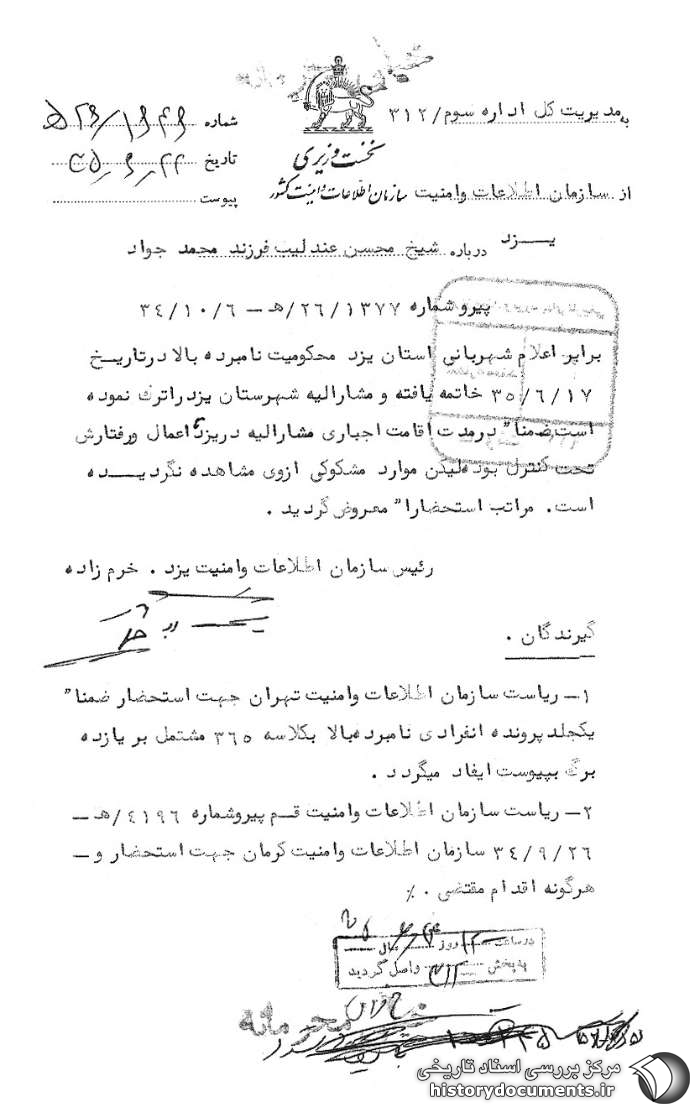 به مدیریت کل اداره سوم/۳۱۲
شماره ۲۶/۱۶۴۶/ﻫ
نخست وزیری
تاریخ ۳۵/۶/۲۲
از سازمان اطلاعات وامنیت سازمان اطلاعات و امنیت کشور
پیوست
یزد درباره شیخ محسن عندلیب فرزند محمد جواد
پیرو شماره ۲۶/۱۳۷۷/هـ – ۳۴/۱۰/۶
برابر اعلام شهربانی استان یزد محکومیت نامبرده بالا درتاریخ
۳۵/۶/۱۷ خاتمه یافته و مشارالیه شهرستان یزدراترک نموده
است ضمنا" درمدت اقامت اجباری مشارالیه دریزد اعمال ورفتارش
تحت کنترل بوده لیکن موارد مشکوکی ازوی مشاهده نگردیــده
است. مراتب استحضارا" معروض گردید.
رئیس سازمان اطلاعات وامنیت یزد. خرم زاده
گیرندگان.
۱– ریاست سازمان اطلاعات وامنیت تهران جهت استحضار ضمنا"
یکجلد پرونده انفرادی نامبرده بالا بکلاسه ۳۶۵ مشتمل بر یازده
برگ بپیوست ایفاد میگردد.
۲– ریاست سازمان اطلاعات وامنیت قـم پیروشماره ۴۱۹۶/هـ –
۳۴/۹/۲۶ سازمان اطلاعات وامنیت کرمان جهت استحضار و –
هرگونه اقدام مقتضی. ٪
درساعت روز سال
به پخش واصل گردید
محرمانه
مرکز بررسی اسناد تاریخی
historydocuments.ir